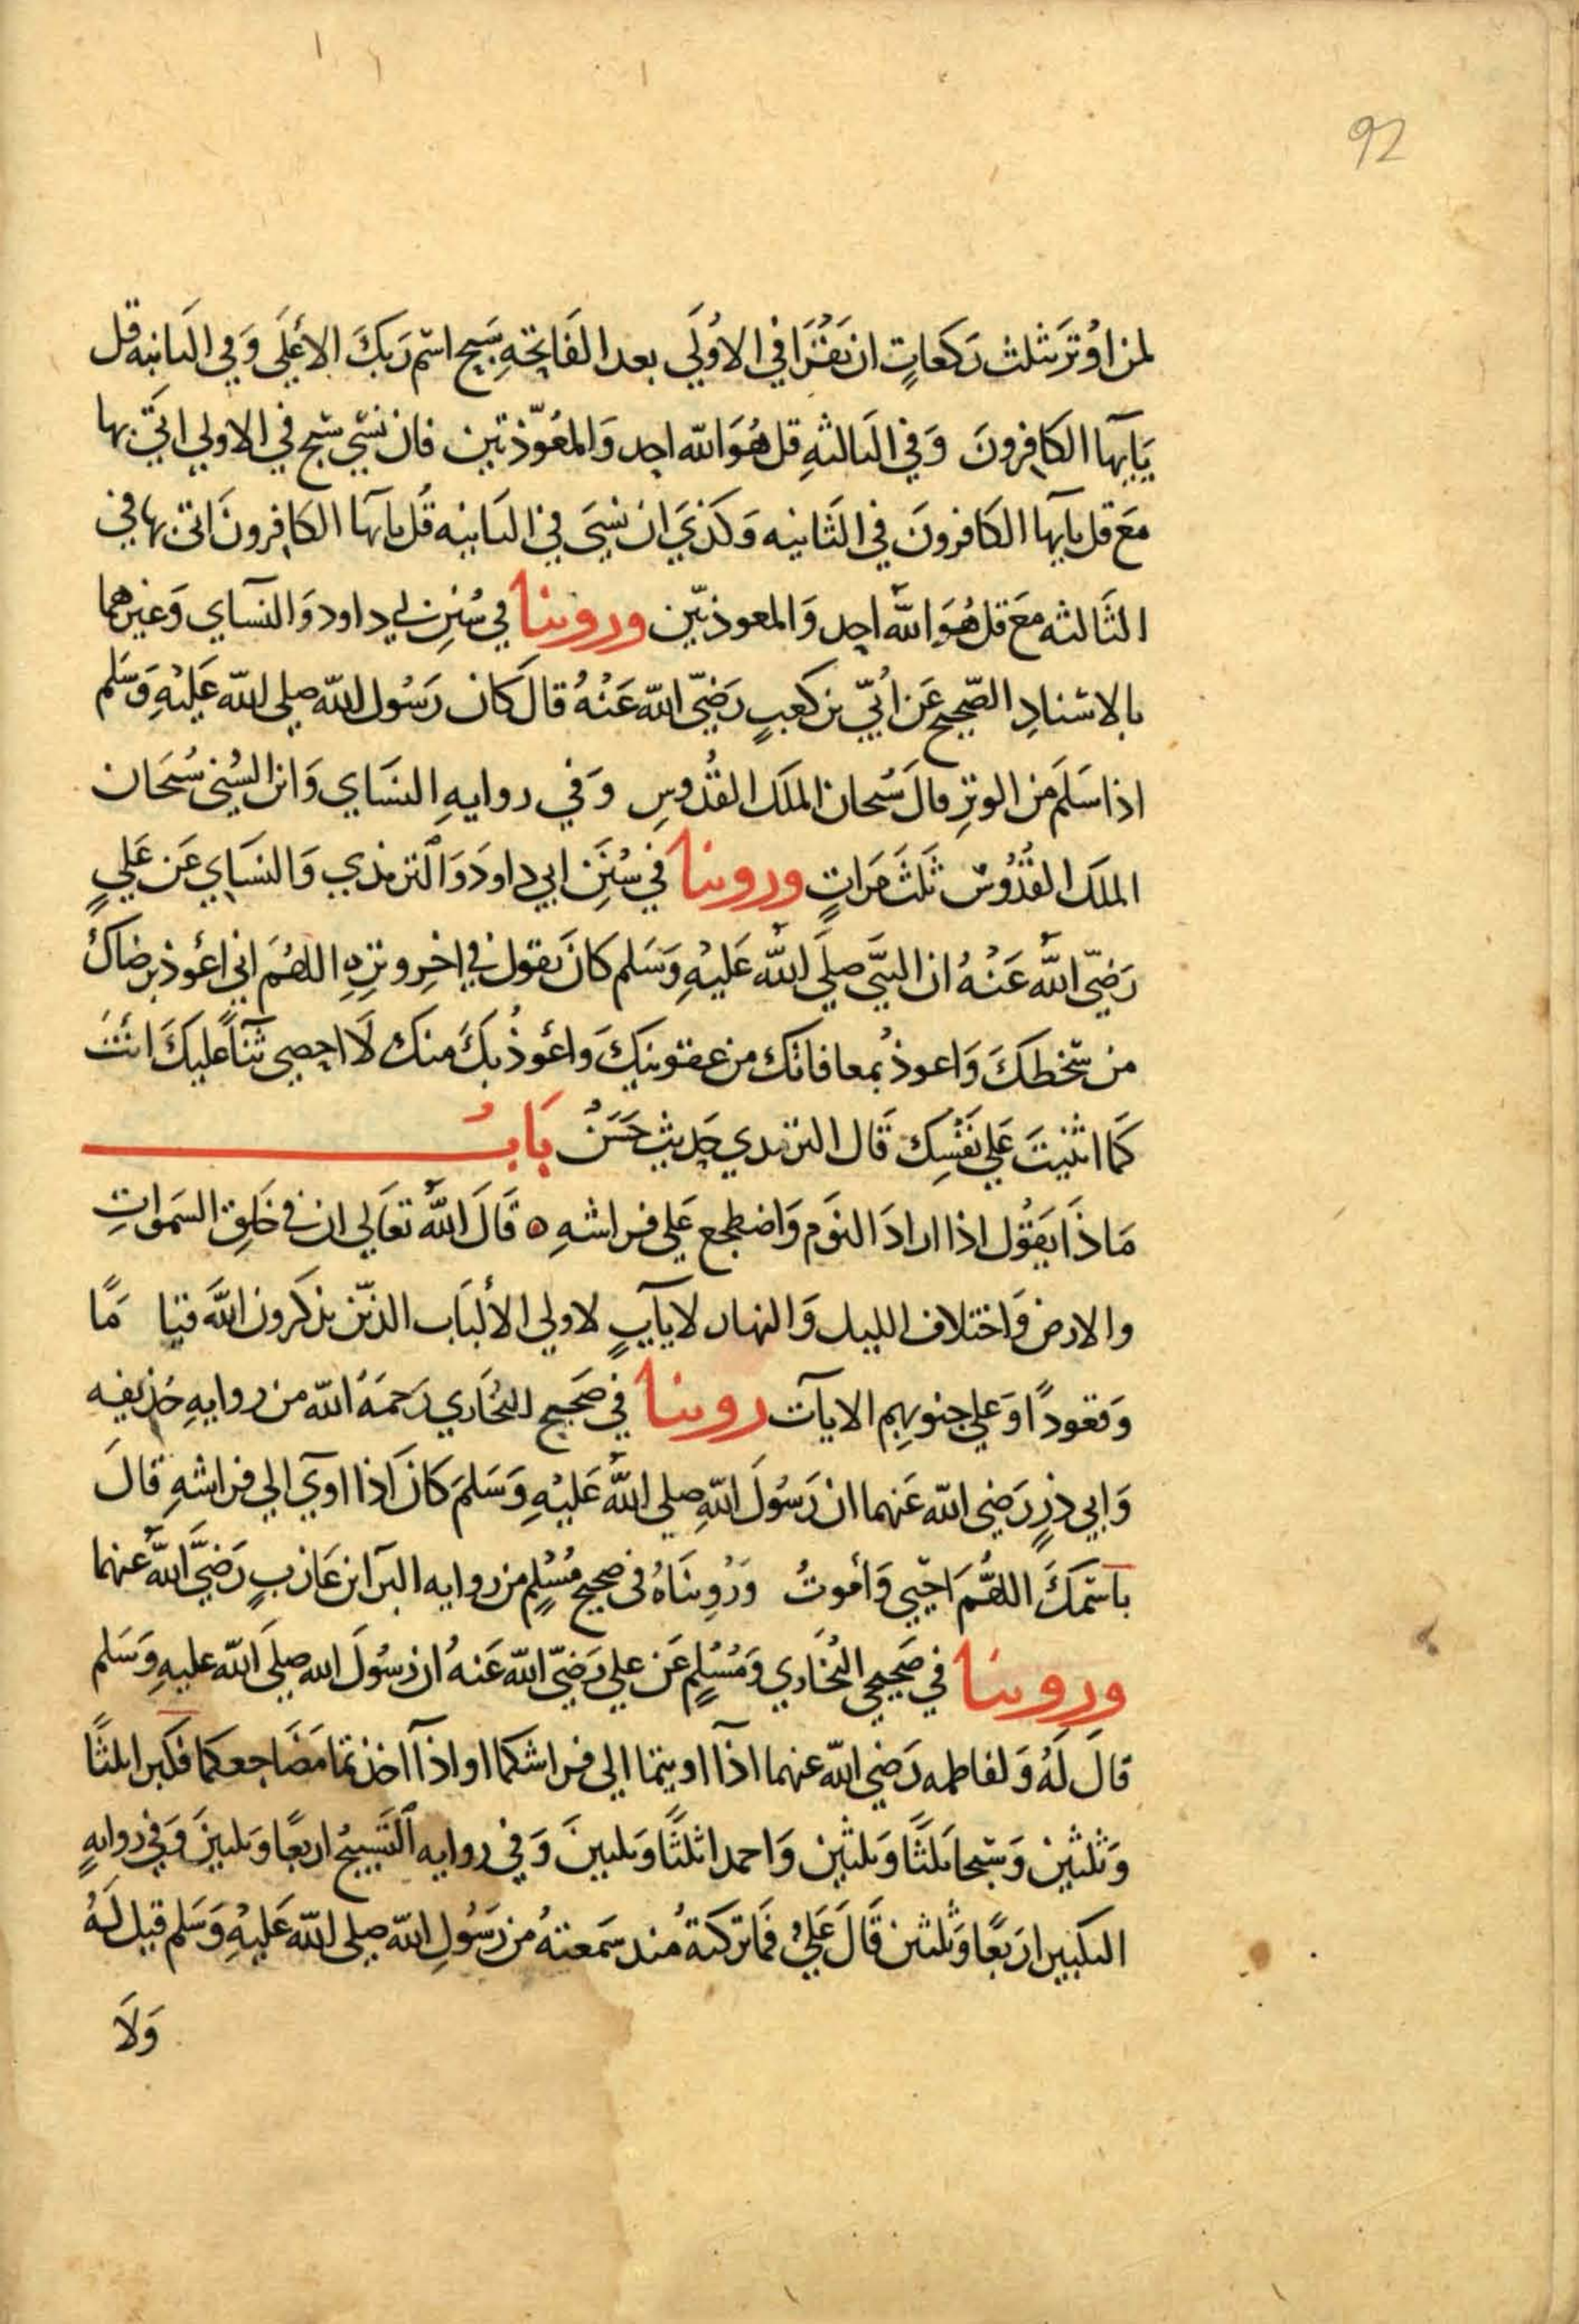 92
لمن اوتر بثلث ركعات ان يقرا في الاولي بعد الفاتحة سبح اسم ربك الاعلي وفي الثانيه قل
يايها الكافرون وفي الثالثه قل هو الله احد والمعوذتين فان نسي سبح في الاولي اتي بها
مع قل يايها الكافرون في الثانيه وكذي ان نسي في الثانيه قل يايها الكافرون اتي بها في
الثالثه مع قل هو الله احد والمعوذتين وروينا في سنن ابي داود والنسآي وغيرهما
بالاسناد الصحيح عن ابي بن كعب رضي الله عنه قال كان رسول الله صلي الله عليه وسلم
اذا سلم من الوتر قال سبحان الملك القدوس وفي روايه النساي وابن السني سبحان
الملك القدوس ثلث مرات وروينا في سنن ابي داود والترمذي والنساي عن علي
رضي الله عنه ان النبي صلي الله عليه وسلم كان يقول في اخر وتره اللهم اني اعوذ برضاك
من سخطك واعوذ بمعافاتك من عقوبتك واعوذ بك منك لا احصي ثنآ عليك انت
كما اثنيت علي نفسك قال الترمدي حديث حسن باب
ماذا يقول اذا اراد النوم واضطجع علي فراشه ه قال الله تعالي ان في خلق السموات
والارض واختلاف الليل والنهار لايآت لاولي الألباب الذين يذكرون الله قيا ما
وقعودا وعلي جنوبهم الايآت روينا في صحيح البخاري رحمه الله من روايه حذيفه
وابي ذر رضي الله عنهما ان رسول الله صلي الله عليه وسلم كان اذا اوي الي فراشه قال
باسمك اللهم احيي وأموت ورويناه في صحيح مسلم من روايه البرآ ابن عازب رضي الله عنهما
وروينا في صحيحي البخاري ومسلم عن علي رضي الله عنه ان رسول الله صلي الله عليه وسلم
قال له ولفاطمه رضي الله عنهما اذآ اويتما الي فراشكما او اذآ اخذتما مضاجعكما فكبرا ثلثا
وثلثين وسبحا ثلثا وثلثين واحمدا ثلثا وثلثين وفي روايه التسبيح اربعا وثلثين وفي روايه
التكبير اربعا وثلثين قال علي فما تركته منذ سمعته من رسول الله صلي الله عليه وسلم قيل له
ولا